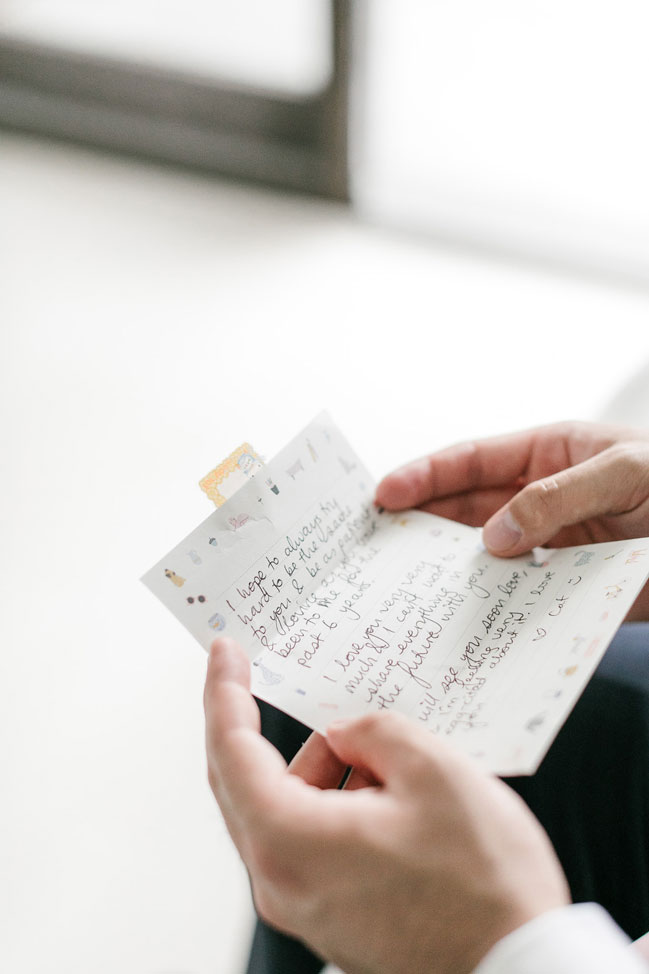 I hope to always try
hard to be the
to you & be as patient
& loving as you've
been to me for the
past 6 years.
I love you very very
much & I can't wait to
share everything in
the future with you.
will see you soon love,
I'm feeling very
egg-cited about it! I love
you
♡ Cat ☺